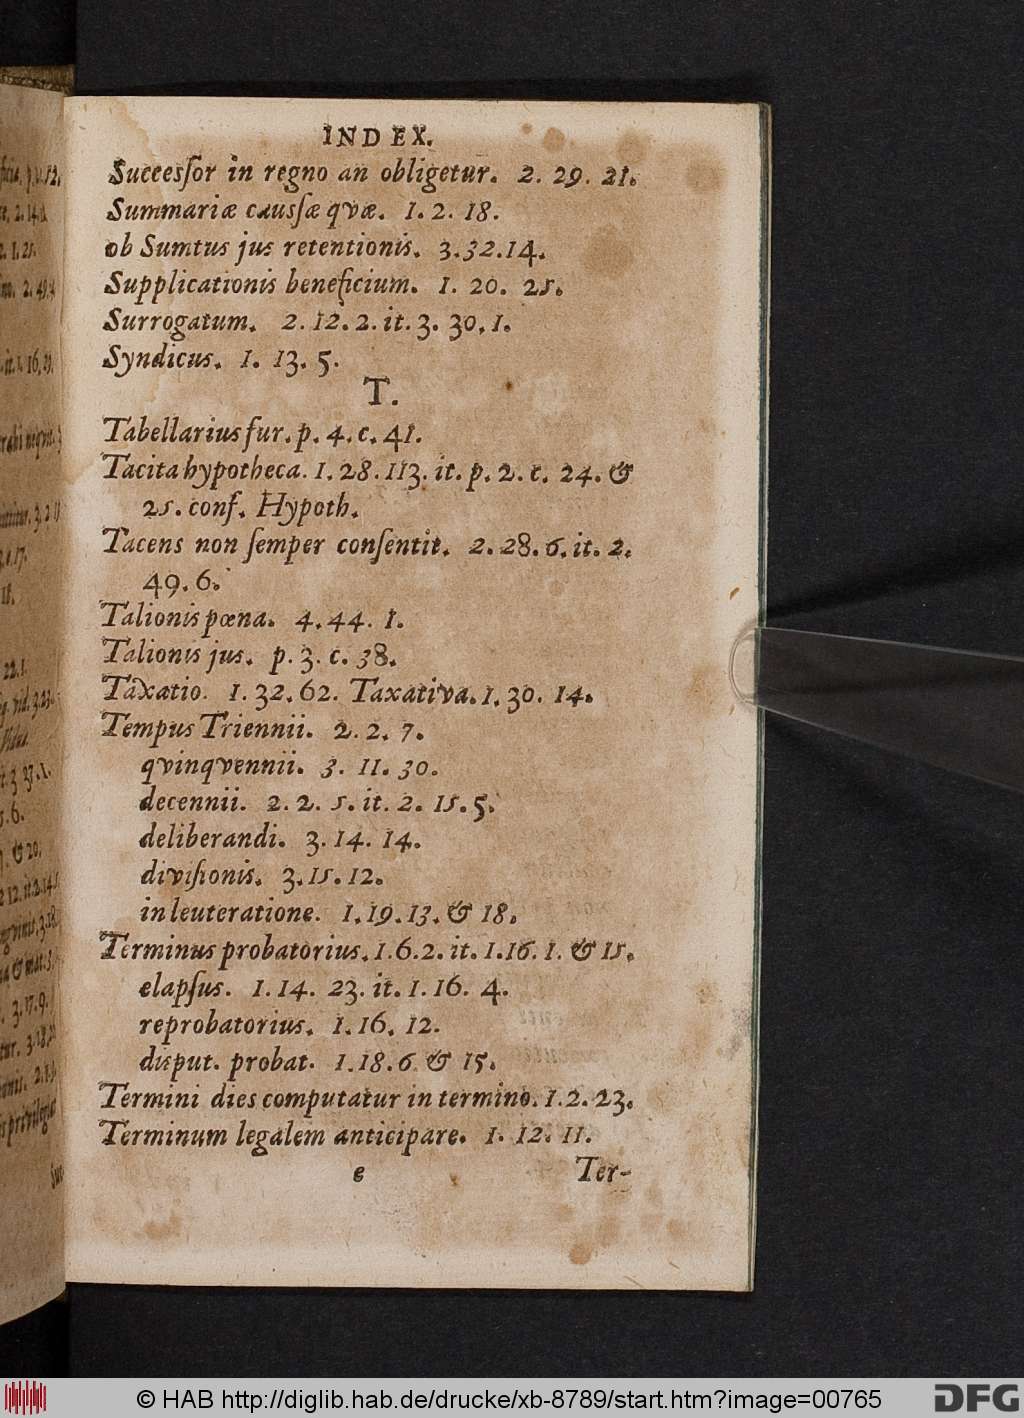 INDEX.
Succesſor in regno an obligetur. 2. 29. 21.
Summariæ cauſſæ qvæ. 1. 2. 18.
ob Sumtus jus retentionis. 3.32.14.
Supplicationis beneficium. 1. 20. 25.
Surrogatum. 2. 12. 2. it. 3. 30. 1.
Syndicus. 1. 13. 5.
T.
Tabellarius fur. p. 4. c. 41.
Tacita hypotheca. 1. 28. 113. it. p. 2. c. 24. &
25. conf. Hypoth.
Tacens non ſemper conſentit. 2. 28. 6. it. 2.
49. 6.
Talionis pœna. 4. 44. 1.
Talionis jus. p. 3. c. 38.
Taxatio. 1. 32. 62. Taxativa. 1. 30. 14.
Tempus Triennii. 2. 2. 7.
qvinqvennii. 3. 11. 30.
decennii. 2. 2. 5. it. 2. 15. 5.
deliberandi. 3. 14. 14.
diviſionis. 3. 15. 12.
in leuteratione. 1. 19. 13. & 18.
Terminus probatorius. 1. 6. 2. it. 1. 16. 1. & 15.
elapſus. 1. 14. 23. it. 1. 16. 4.
reprobatorius. 1. 16. 12.
disput. probat. 1. 18. 6 & 15.
Termini dies computatur in termino. 1. 2. 23.
Terminum legalem anticipare. 1. 12. 11.
e Ter-
© HAB http://diglib.hab.de/drucke/xb-8789/start.htm?image=00765
DFG